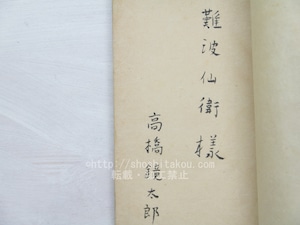 難波仙衛様
高橋鏡太郎
©http://shoshitakou.com/
転載・加工禁止